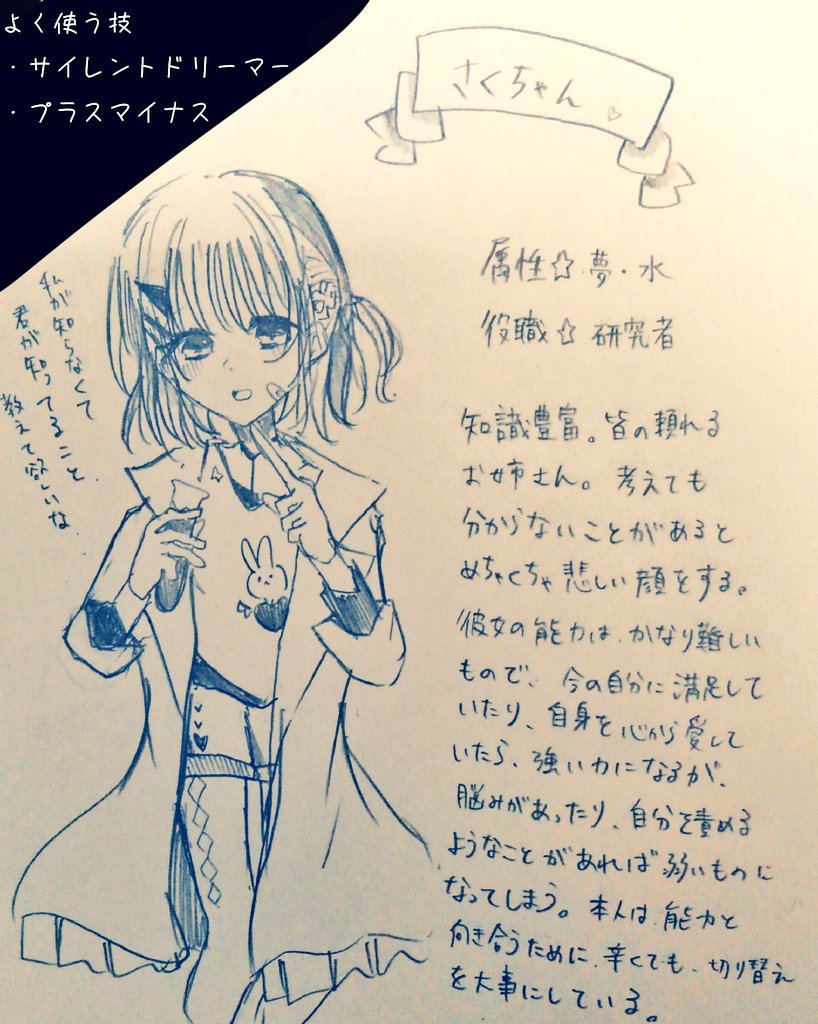 よく使う技
・サイレントドリーマー
・プラスマイナス
さくちゃん♡
属性☆夢・水
役職☆研究者
私が知らなくて
君が知ってること
教えて欲しいな
知識豊富。皆の頼れる
お姉さん。考えても
分からないことがあると
めちゃくちゃ悲しい顔をする。
彼女の能力は、かなり難しい
もので、今の自分に満足して
いたり、自身を心から愛して
いたら、強い力になるが、
脳みがあったり、自分を責める
ようなことがあれば弱いものに
なってしまう。本人は、能力と
向き合うために、辛くても、切り替え
を大事にしている。